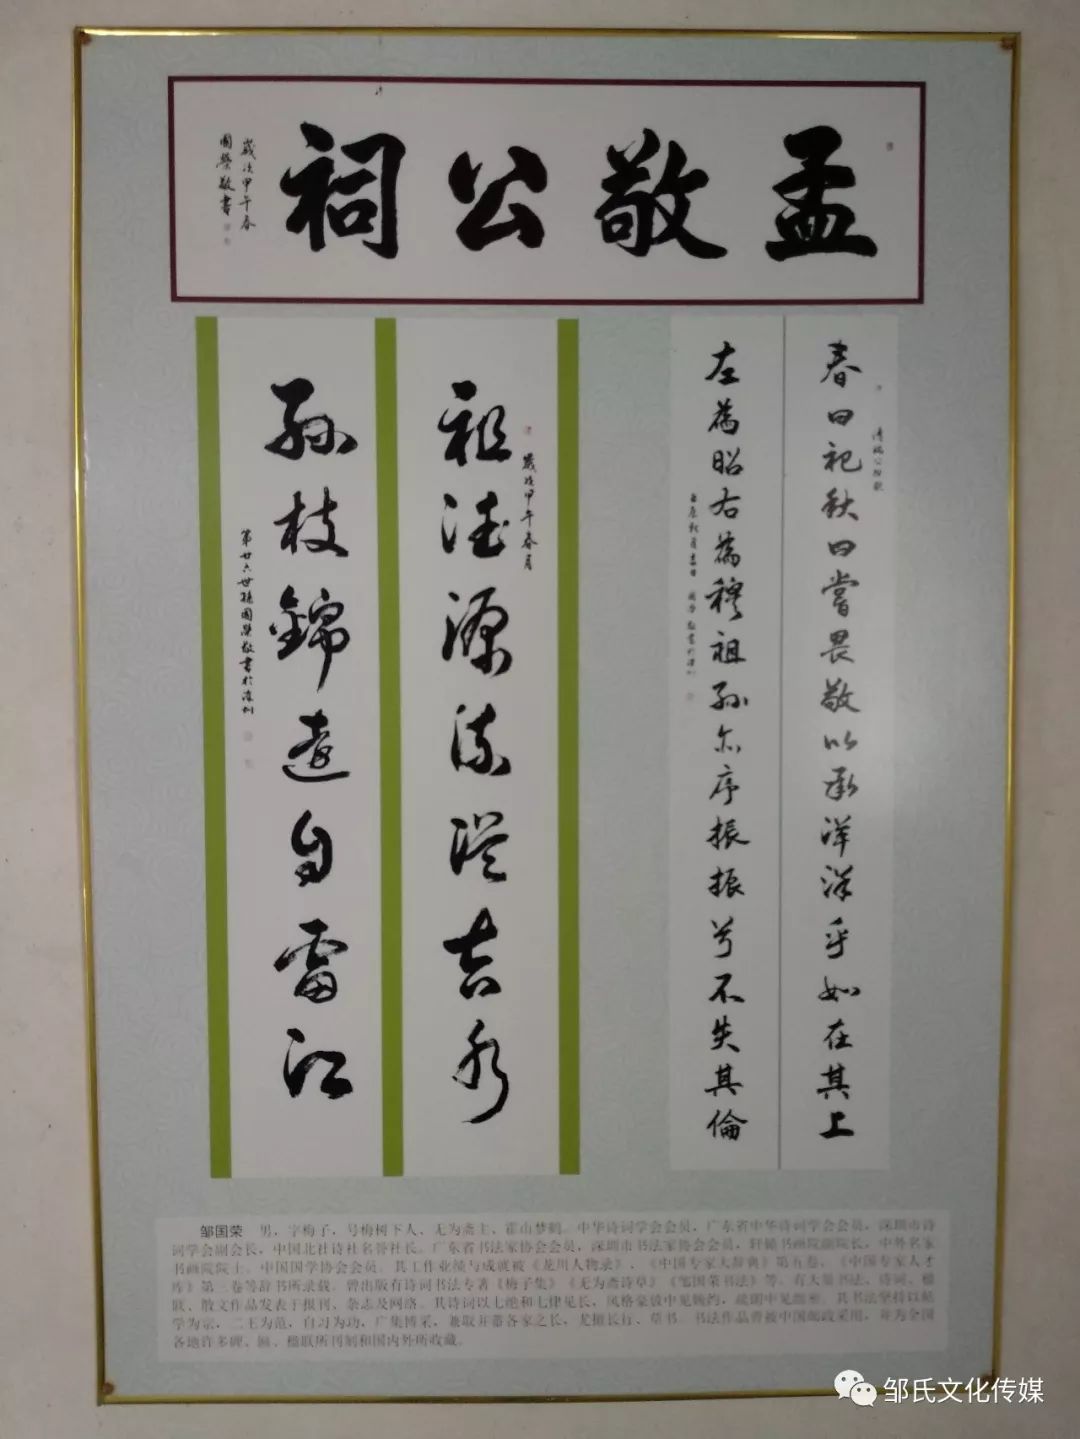 孟敬公祠
歲次甲午春
國榮敬書
春曰祀秋曰嘗畏敬以承洋洋乎如在其上
左為昭右為穆祖孫亦序振振兮不失其倫
秋月吉日 國榮敬書於深圳
歲次甲午春月
祖德源流從吉水
孫枝錦遠自雷江
第廿六世孫國榮敬書於深圳
邹国荣 男，字梅子，号梅树下人、无为斋主、霍山梦鹤。中华诗词学会会员，广东省中华诗词学会会员，深圳市诗
词学会副会长，中国北社诗社名誉社长。广东省书法家协会会员，深圳市书法家协会会员，轩辕书画院副院长，中外名家
书画院院士，中国国学协会会员。其工作业绩与成就被《龙川人物录》、《中国专家大辞典》第五卷，《中国专家人才
库》第三卷等辞书所录载。曾出版有诗词书法专著《梅子集》《无为斋诗草》《邹国荣书法》等。有大量书法、诗词、楹
联、散文作品发表于报刊、杂志及网络。其诗词以七绝和七律见长，风格豪放中见婉约，疏朗中见细密。其书法坚持以帖
学为宗，二王为范，自习为功，广集博采，兼取并蓄各家之长，尤擅长行、草书。书法作品曾被中国邮政采用，并为全国
各地许多碑、匾、楹联所刊刻和国内外所收藏。
邹氏文化传媒